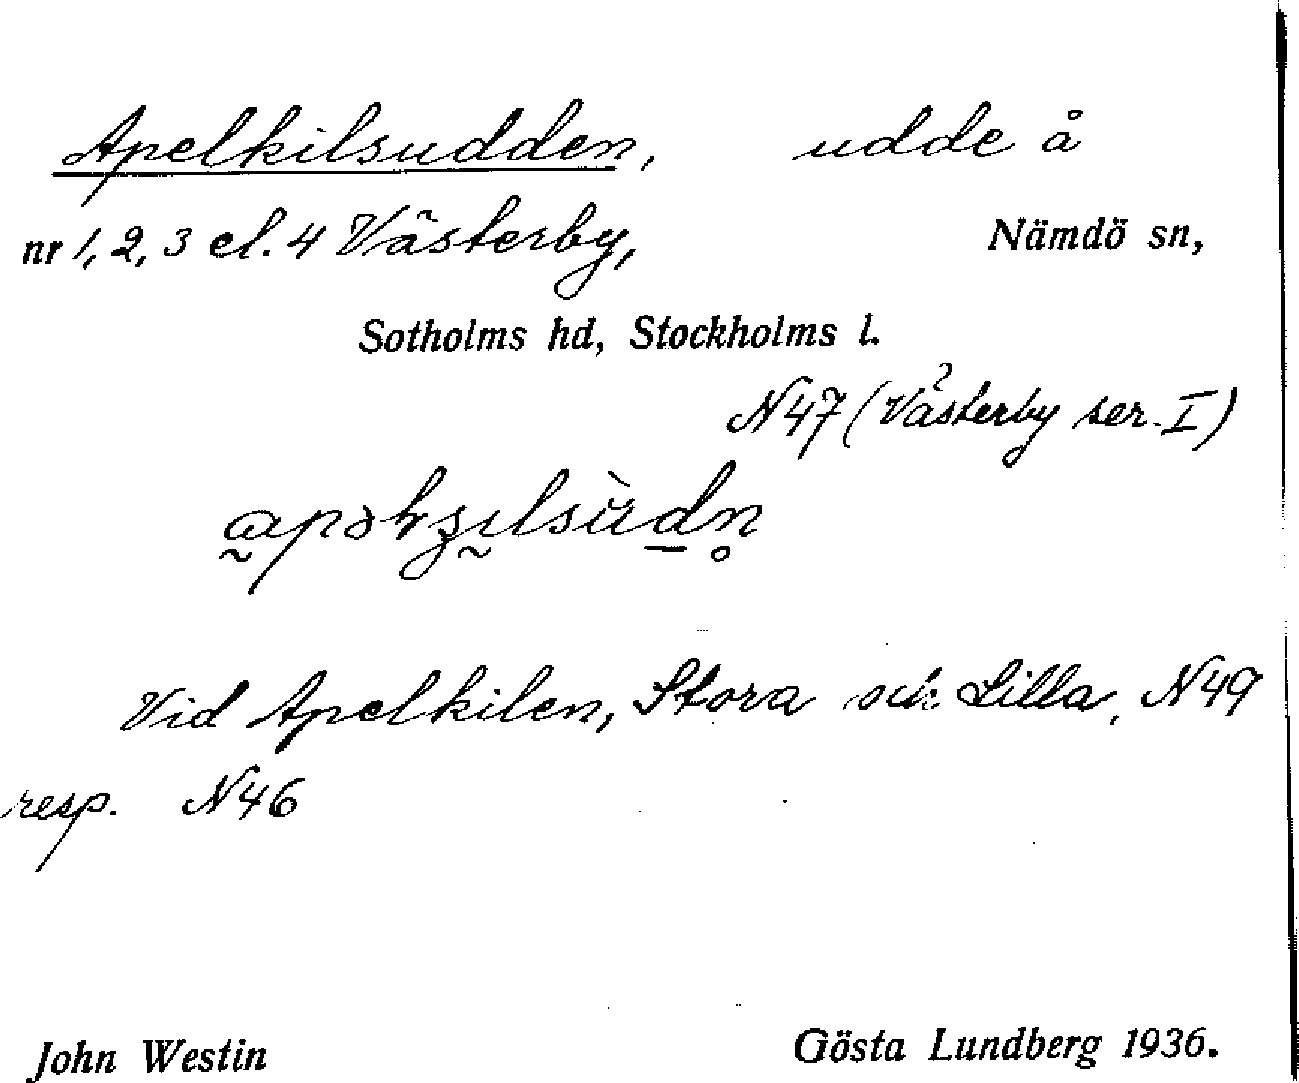 Apelkilsudden, udde å
nr 1, 2, 3 el. 4 Västerby, Nämdö sn,
Sotholms hd, Stockholms l.
N47 (Västerby ser. I)
Vid Apelkilen, Stora och Lilla, N49
resp. N46
John Westin Gösta Lundberg 1936.